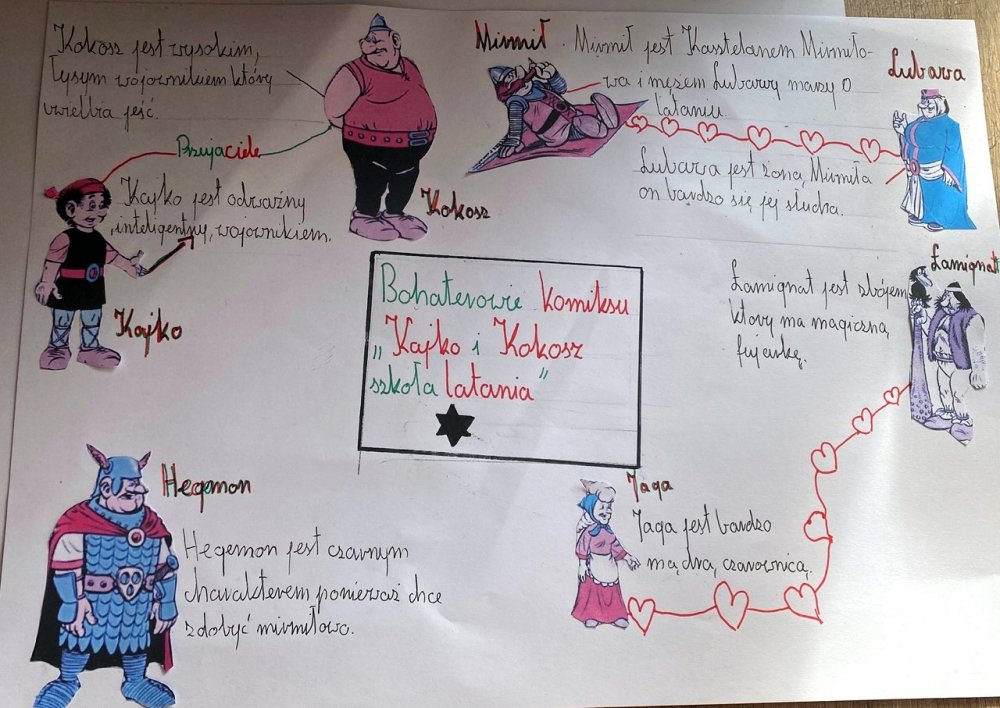 Kokosz jest wysokim,
łysym wojownikiem który
uwielbia jeść.
Przyjaciele
Kajko jest odważny
, inteligentny, wojownikiem.
Kajko
Kokosz
Mirmił . Mirmił jest Kasztelanem Mirmiło-
wa i mężem Lubawy marzy o
lataniu.
Lubawa
Lubawa jest żoną Mirmiła
on bardzo się jej słucha.
Łamignat
Łamignat jest zbójem
który ma magiczną
fujarkę.
Bohaterowie komiksu
„Kajko i Kokosz
szkoła latania”
Hegemon
Hegemon jest czarnym
charakterem ponieważ chce
zdobyć mirmiłowo.
Jaga
Jaga jest bardzo
mądrą czarownicą.